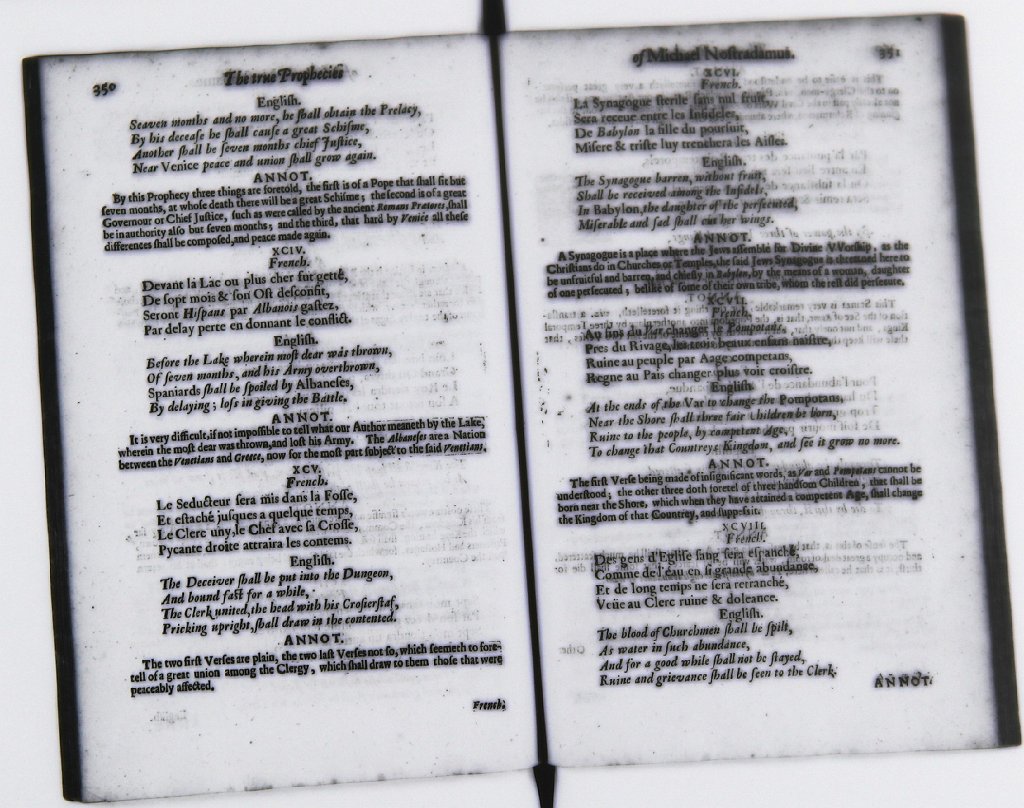 350
The true Prophecies
English.
Seaven months and no more, he ſhall obtain the Prelacy,
By his deceaſe he ſhall cauſe a great Schiſme,
Another ſhall be ſeven months chief Juſtice,
Near Venice peace and union ſhall grow again.
ANNOT.
By this Prophecy three things are foretold, the firſt is of a Pope that ſhall ſit but
ſeven months, at whoſe death there will be a great Schiſme; the ſecond is of a great
Governour or Chief Juſtice, ſuch as were called by the ancient Romans Pretores, ſhall
be in authority alſo but ſeven months; and the third, that hard by Venice all theſe
differences ſhall be compoſed, and peace made again.
XCIV.
French.
Devant la Lac ou plus cher fut getté,
De ſept mois & ſon Oſt deſconfit,
Seront Hiſpans par Albanois gaſtez,
Par delay perte en donnant le conflict.
English.
Before the Lake wherein moſt dear was thrown,
Of ſeven months, and his Army overthrown,
Spaniards ſhall be ſpoiled by Albaneſes,
By delaying; loſs in giving the Battle.
ANNOT.
It is very difficult, if not impoſſible to tell what our Author meaneth by the Lake,
wherein the moſt dear was thrown, and loſt his Army. The Albaneſes are a Nation
between the Venetians and Greece, now for the moſt part ſubject to the ſaid Venetians.
XCV.
French.
Le Seducteur ſera mis dans la Foſſe,
Et eſtaché juſques a quelque temps,
Le Clerc uny, le Chef avec ſa Croſſe,
Pycante droite attraira les contems.
Engliſh.
The Deceiver ſhall be put into the Dungeon,
And bound faſt for a while,
The Clerk united, the head with his Croſierſtaf,
Pricking upright, ſhall draw in the contented.
ANNOT.
The two firſt Verſes are plain, the two laſt Verſes not ſo, which ſeemeth to fore-
tell of a great union among the Clergy, which ſhall draw to them thoſe that were
peaceably affected.
French.
of Michael Noſtradamus.
351
XCVI.
French.
La Synagogue ſterile ſans nul fruit,
Sera receue entre les Infideles,
De Babylon la fille du pourſuit,
Miſere & triſte luy trenchera les Aiſles.
Engliſh.
The Synagogue barren, without fruit,
Shall be received among the Infidels,
In Babylon, the daughter of the perſecuted,
Miſerable and ſad ſhall cut her wings.
ANNOT.
A Synagogue is a place where the Jews aſſemble for Divine VVorſhip, as the
Chriſtians do in Churches or Temples, the ſaid Jews Synagogue is threatned here to
be unfruitful and barren, and chiefly in Babylon, by the means of a woman, daughter
of one perſecuted, belike of ſome of their own tribe, whom the reſt did perſecute.
XCVII.
French.
Au fins du Var changer le Pompotans,
Pres du Rivage, les trois beaux enfans naiſtre,
Ruine au peuple par Aage competans,
Regne au Pais changer plus voir croiſtre.
Engliſh.
At the ends of the Var to change the Pompotans,
Near the Shore ſhall three fair Children be born,
Ruine to the people, by competent Age,
To change that Countreys Kingdom, and ſee it grow no more.
ANNOT.
The firſt Verſe being made of inſignificant words, as Var and Pompotans cannot be
underſtood; the other three doth foretel of three handſom Children, that ſhall be
born near the Shore, which when they have attained a competent Age, ſhall change
the Kingdom of that Countrey, and ſuppreſs it.
XCVIII.
French.
Des gens d'Egliſe ſang ſera eſpanché,
Comme de l'eau en ſi grande abundance,
Et de long temps ne ſera retranché,
Veüe au Clerc ruine & doleance.
Engliſh.
The blood of Churchmen ſhall be ſpilt,
As water in ſuch abundance,
And for a good while ſhall not be ſtayed,
Ruine and grievance ſhall be ſeen to the Clerk.
ANNOT.